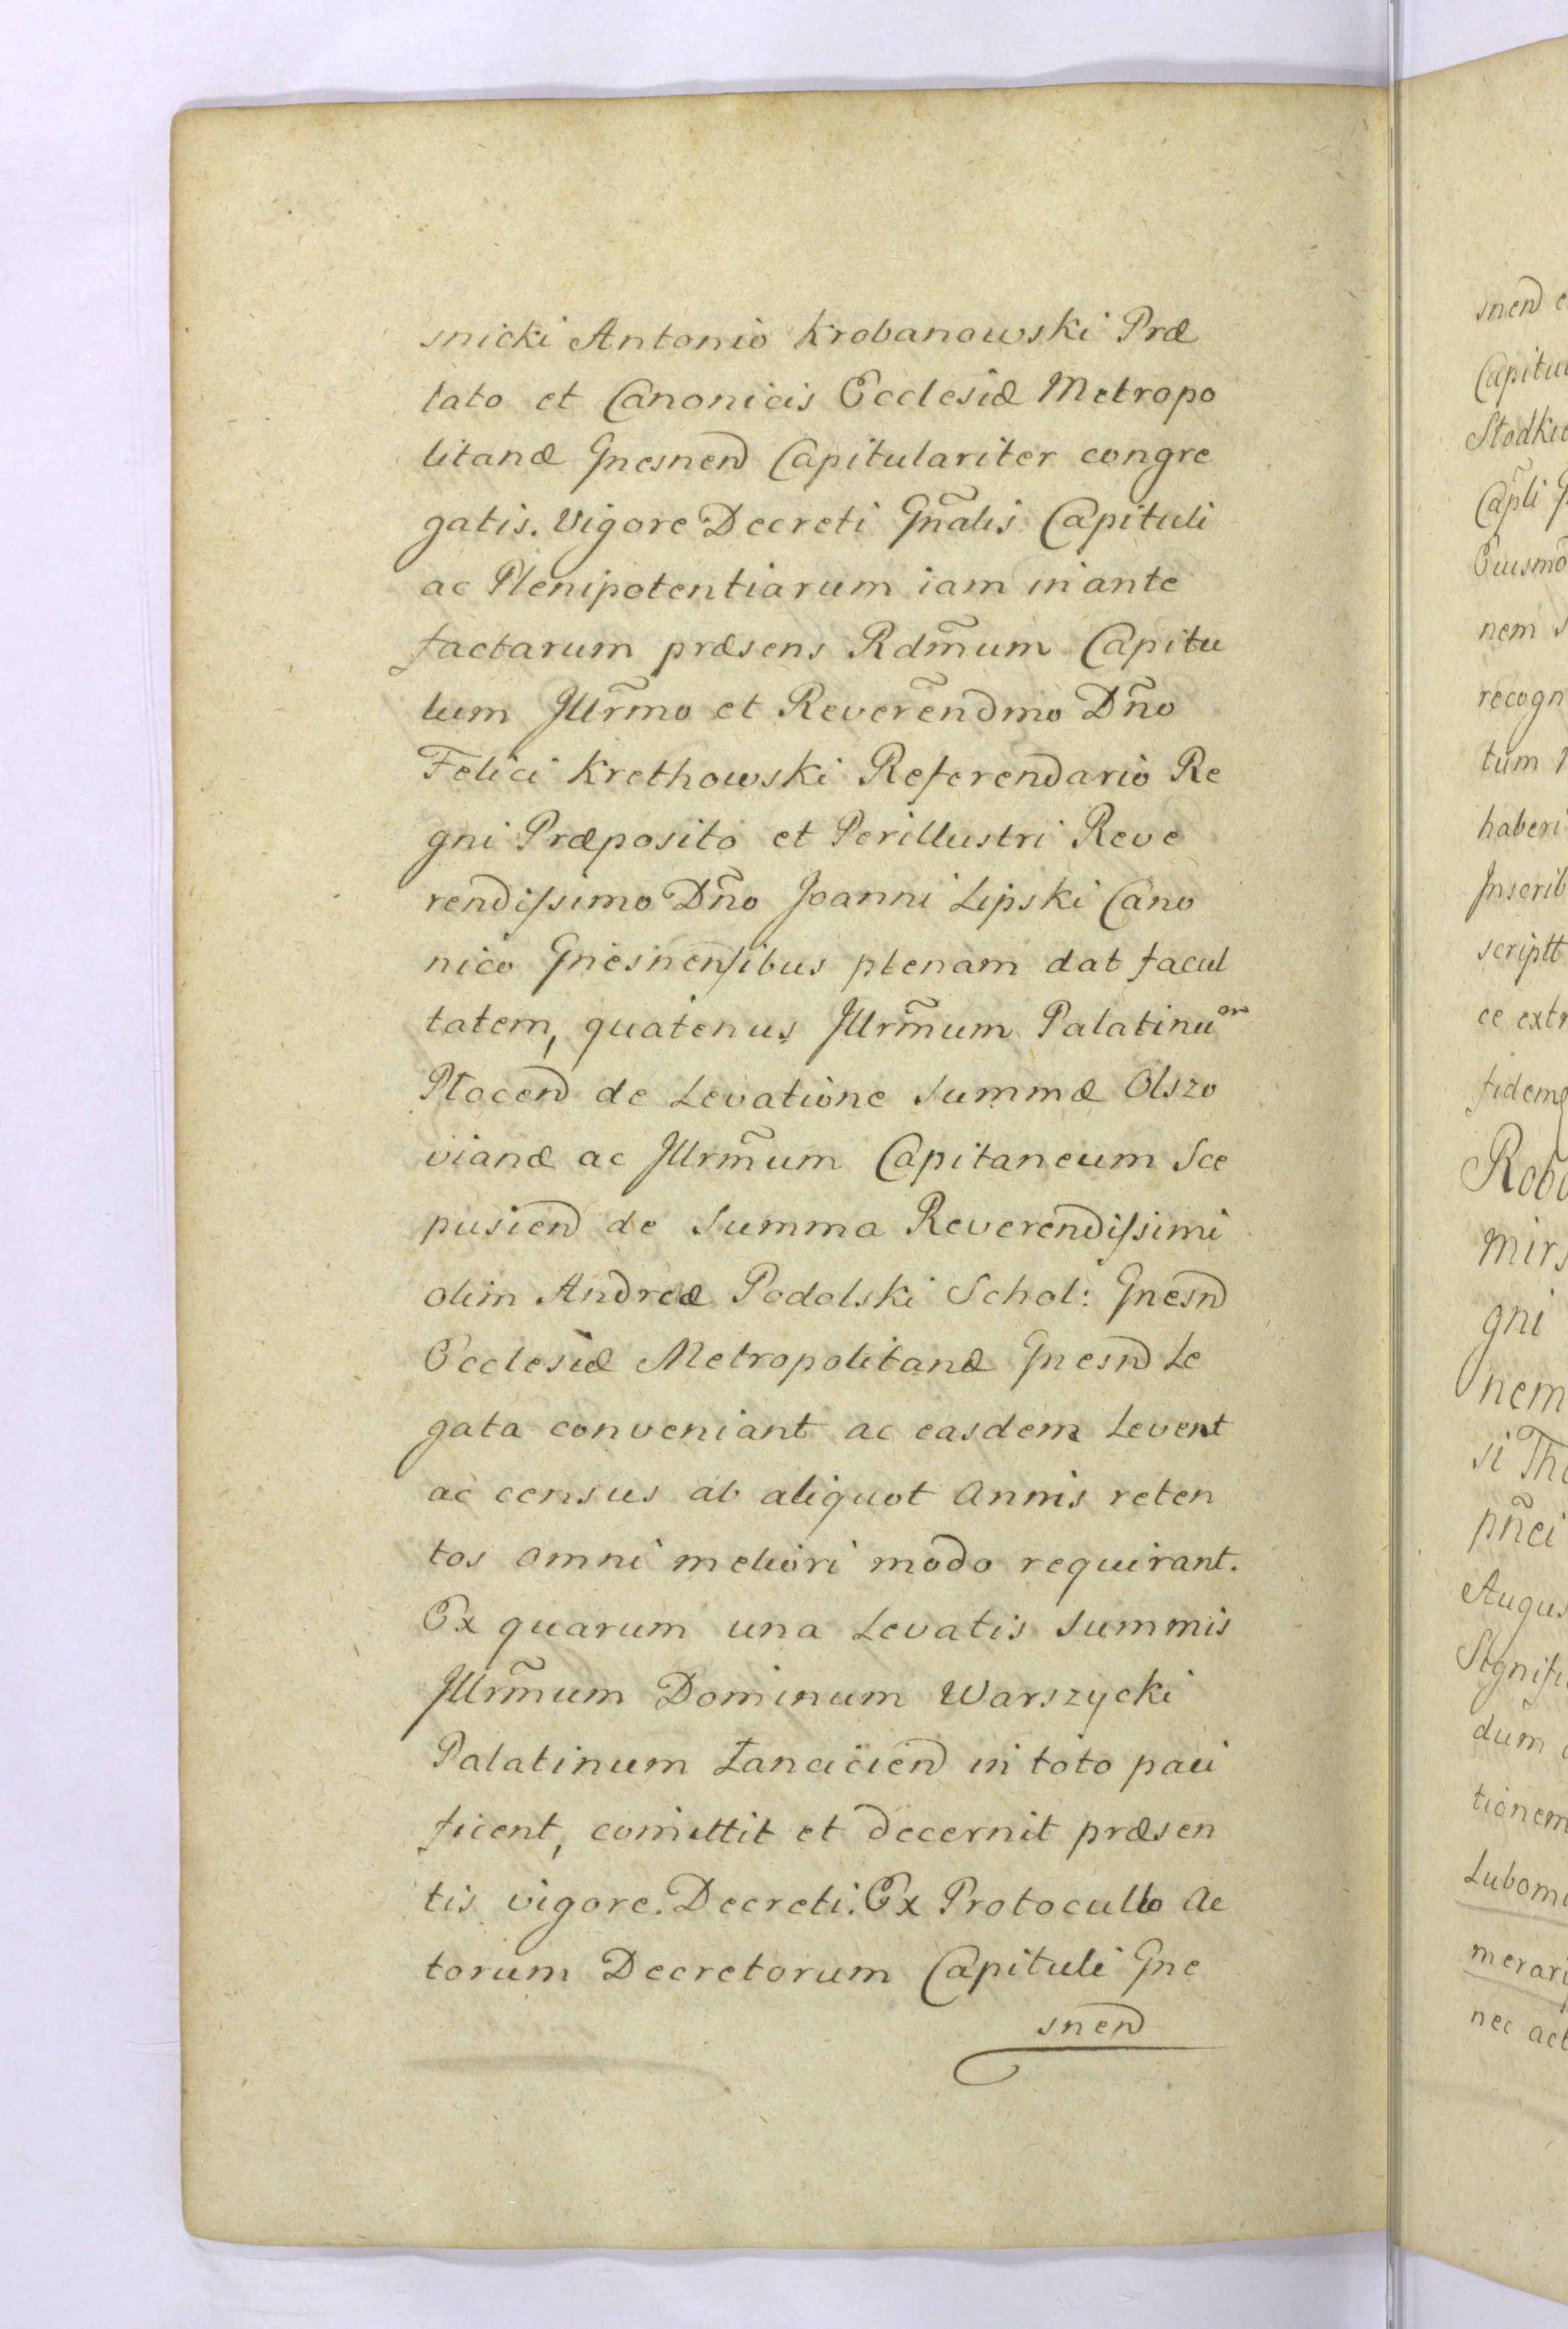 snicki Antonio Krobanowski Præ
lato et Canonicis Ecclesiæ Metropo
litanæ Gnesnen Capitulariter congre
gatis. Vigore Decreti Gñalis Capituli
ac Plenipotentiarum iam in ante
factarum præsens Rdm̃um Capitu
lum Jllr̃mo et Reverẽndmo Dño
Felici Krethowski Referendario Re
gni Præposito et Perillustri Reve
rendiſsimo Dño Joanni Lipski Cano
nico Gnesnenſibus plenam dat facul
tatem, quatenus Jllrm̃um Palatinu^m
Płocen de Levatione Summæ Olszo
vianæ ac Jllrm̃um Capitaneum Sce
pusien de Summa Reverendiſsimi
olim Andreæ Podolski Schol: Gnesn
Ecclesiæ Metropolitanæ Gnesn Le
gata conveniant ac easdem Levent
ac census ab aliquot Annis reten
tos omni meliori modo requirant.
Ex quarum una Levatis Summis
Jllrm̃um Dominum Warszycki
Palatinum Łancicien in toto paci
ficent, comittit et decernit præsen
tis vigore. Decreti. Ex Protocullo Ac
torum Decretorum Capituli Gne
snen
snen
Capitu
recogn
tum
haberi
Jnscrib
nem
gni
nem
Augus
dum
tionem
Lubom
merari
nec act